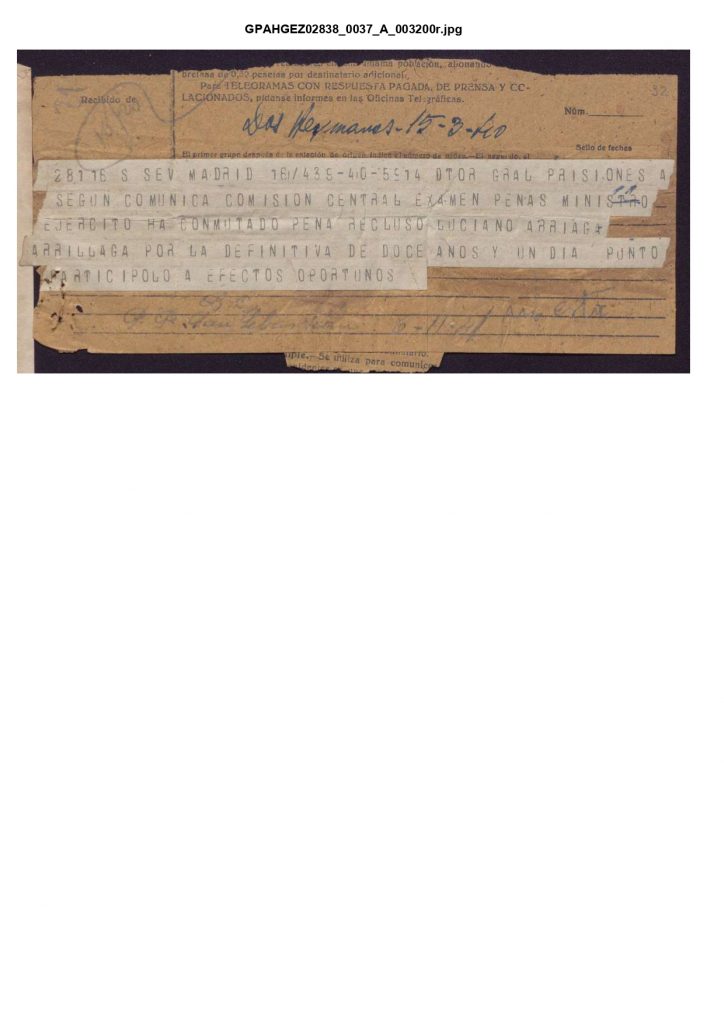 GPAHGEZ02838_0037_A_003200r.jpg
misma población, abonando
brensa de 0,50 pesetas por destinatario adicional.
Para TELEGRAMAS CON RESPUESTA PAGADA, DE PRENSA Y CO-
LACIONADOS, pídanse informes en las Oficinas Telegráficas.
32
Recibido de
Núm.
Dos Hermanas - 15-3-
Sello de fechas
El primer grupo después de la estación de origen indica el número de
28116 S SEV MADRID 18/439-40-5914 DTOR GRAL PRISIONES A
SEGUN COMUNICA COMISION CENTRAL EXAMEN PENAS MINISTRO
EJERCITO HA CONMUTADO PENA RECLUSO LUCIANO ARRIAGA
ARRILLAGA POR LA DEFINITIVA DE DOCE ANOS Y UN DIA PUNTO
PARTICIPOLO A EFECTOS OPORTUNOS
P. P. San Sebastián
Se utiliza para comunic